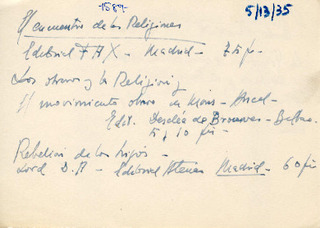 1587
5/13/35
El encuentro de las Religiones
Editorial FAX - Madrid -
Los obreros y la Religión,
El movimiento obrero en
Edit. Desclée de Brouwer - Bilbao.
5,10
Rebelión de los hijos -
Lord D.A - Editorial Atenas Madrid - 60